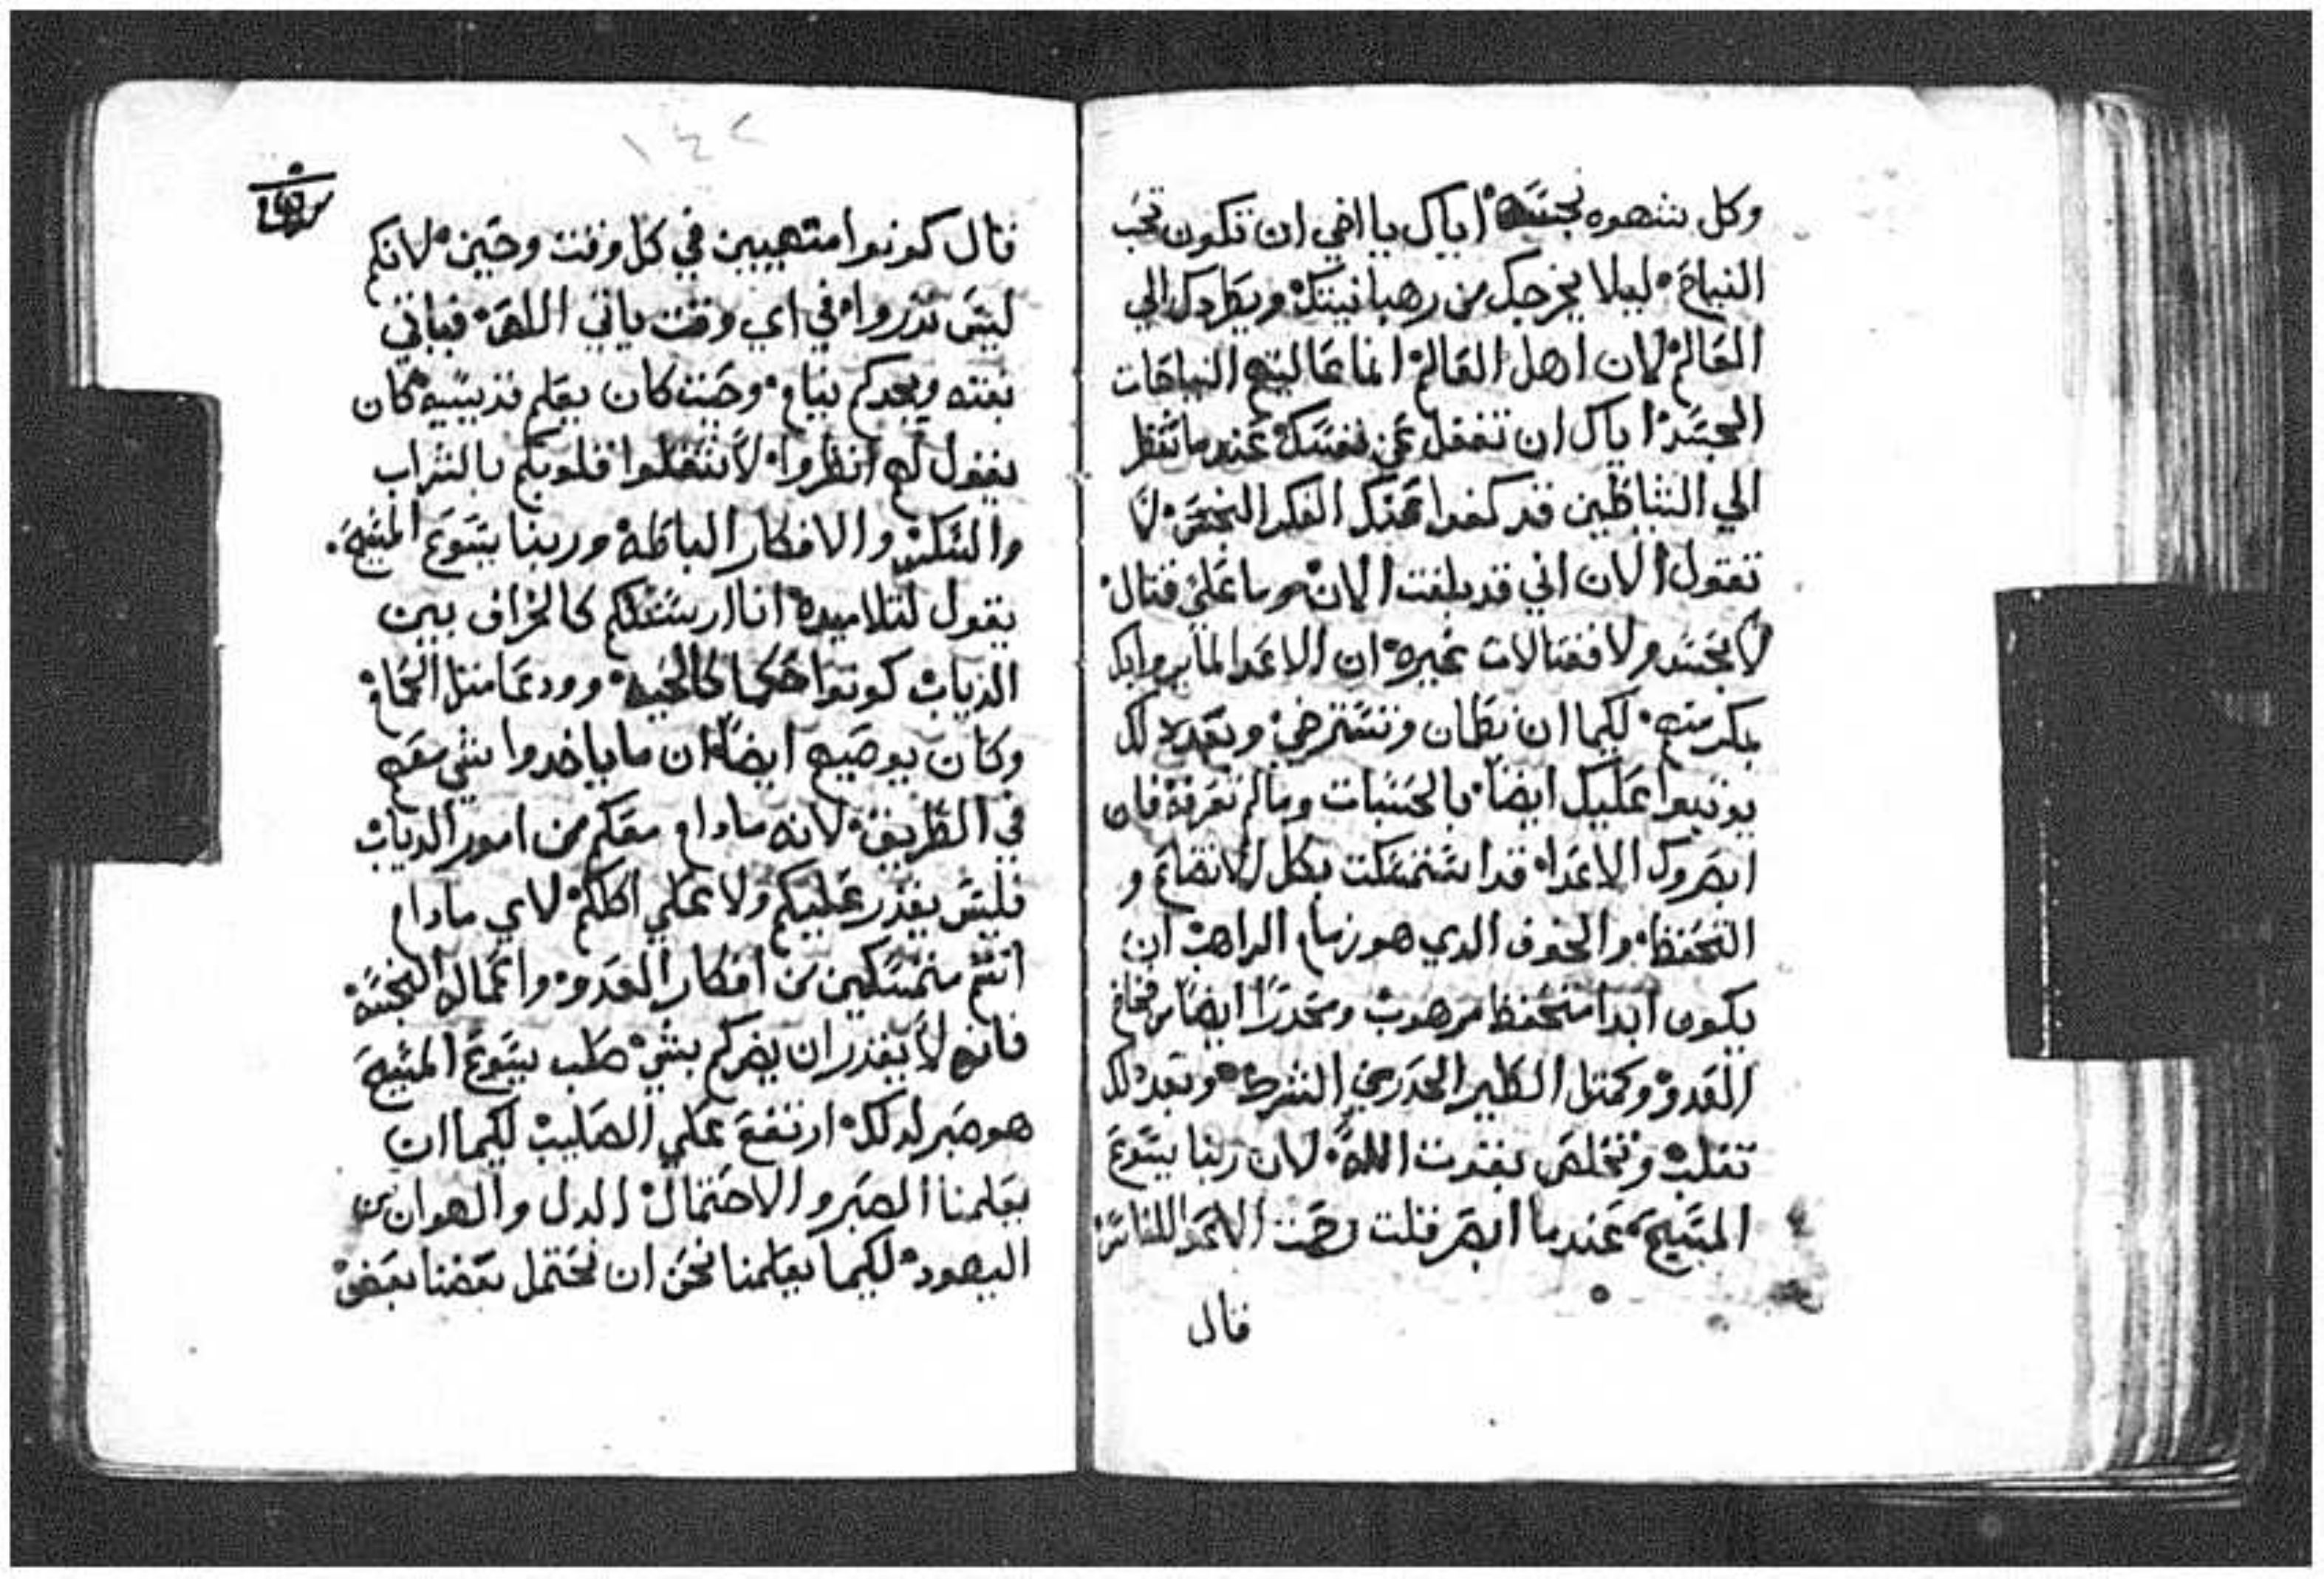 وكل شهوه نجسه اياك يا اخي ان تكون تحب
النياح ليلا يخرجك من رهبانيتك ويطردك الي
العالم لان اهل العالم انما غالبتهم النياحات
الجسد اياك ان تغفل عن نفسك عندما تنظر
الي الشياطين قد كفوا عنك الفكر النجس لا
تقول الان اني قد بلغت الان وما علي قتال
لا بجسد ولا قتالات غيره ان الاعدا انما يروا بك
بمكر منهم لكيما ان تطمان وتسترخي وبعد دلك
يوتبوا عليك ايضا بالحسبات ومالم تعرفه فان
ابصروك الاعدا قد استمسكت بكل الاتضاع و
التحفظ والخوف الدي هو زمام الراهب ان
يكون ابدا متحفظ مرهوب ومتحدرا ايضا من فخاخ
العدو وكمتل الطير الحدر من الشرك وبعد دلك
تغلب وتخلص بقوت الله لان ربنا يسوع
المسيح عندما ابصر قلت رحمت الاعدا للناس
قال
١٤٢
قال كونوا متهيين في كل وقت وحين لانكم
ليس تدروا في اي وقت ياتي اللص فياتي
بغته ويجدكم نيام وحيت كان يعلم قديسيه كان
يقول لهم انظروا لا تتقلوا قلوبكم بالشراب
والسكر والافكار الباطله وربنا يسوع المسيح
يقول لتلاميده انا ارسلتكم كالخراف بين
الدياب كونوا حكما كالحيه وودعا متل الحمام
وكان يوصيهم ايضا ان ما ياخدوا شي معهم
في الطريق لانه مادام معكم من امور الدياب
فليس يقدر عليكم ولا علي اكلكم لاي مادام
انتم متمسكين من افكار العدو واعماله النجسه
فانه لا يقدر ان يضركم بشي صلب يسوع المسيح
هو صبر لدلك ارتفع علي الصليب لكيما ان
يعلمنا الصبر والاحتمال الدل والهوان من
اليهود لكيما يعلمنا نحن ان نحتمل بعضنا بعض